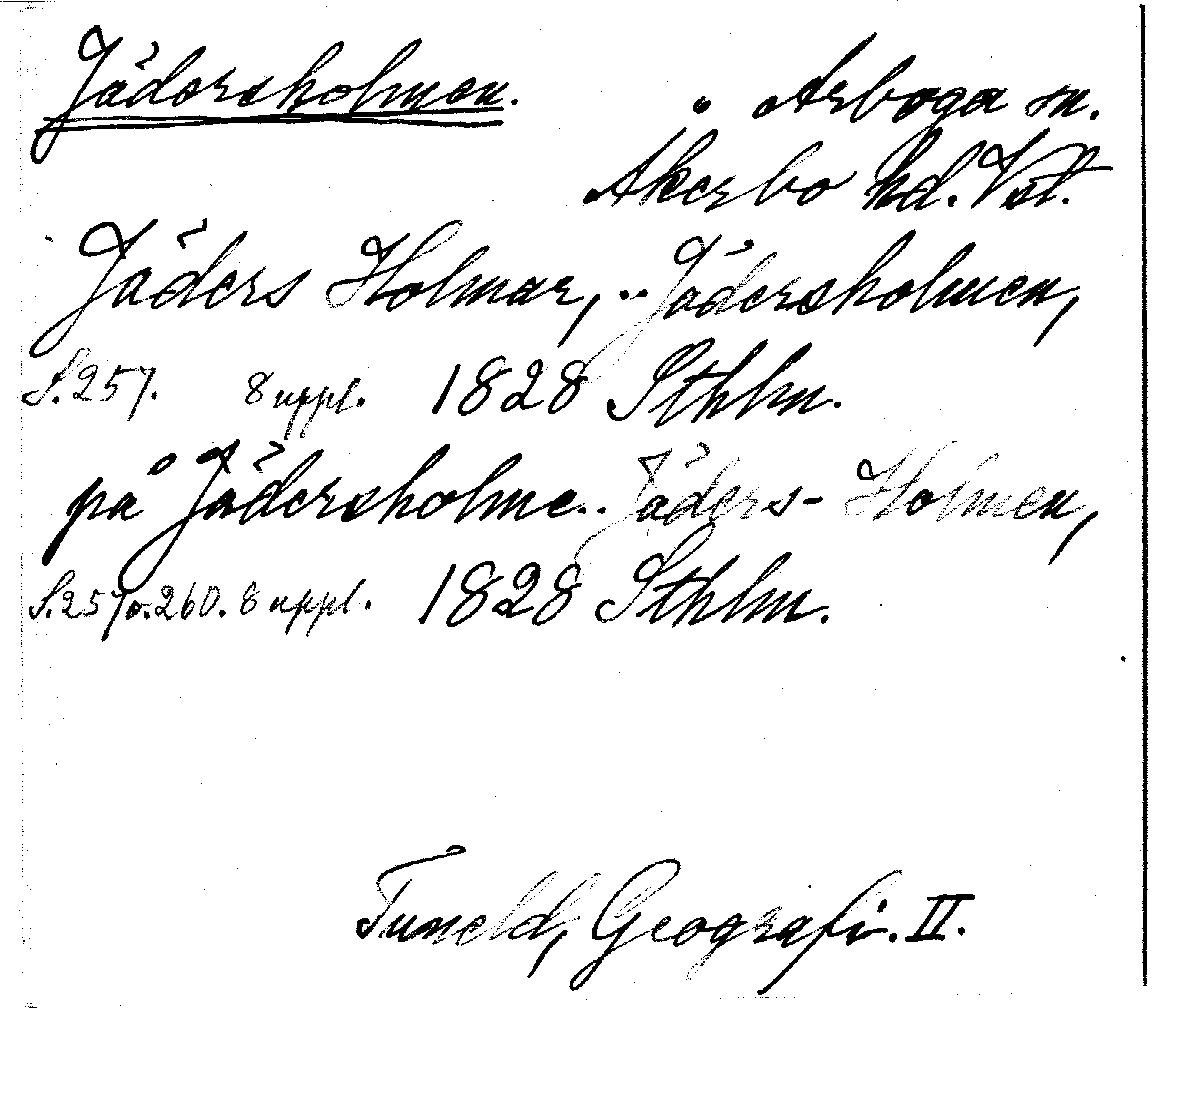 Jädersholmen. Arboga sn.
Akerbo hd. Vstl.
Jäders Holmar, .. Jädersholmen,
S. 257. 8 uppl. 1828 Sthlm.
på Jädersholme.. Jäders-Holmen,
S. 257 o. 260. 8 uppl. 1828 Sthlm.
Tuneld, Geografi. II.